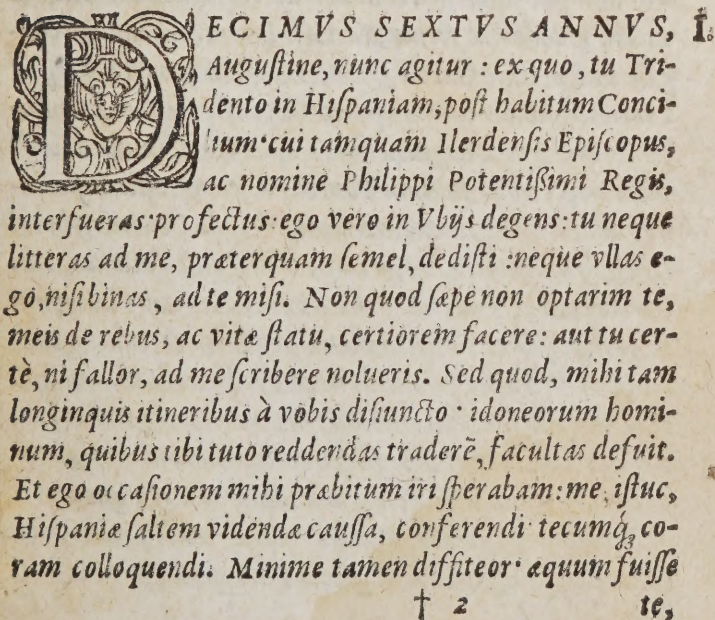 DECIMVS SEXTVS ANNVS, I.
Auguſtine, nunc agitur : ex quo, tu Tri-
dento in Hiſpaniam, poſt habitum Conci-
lium· cui tamquam Ilerdenſis Epiſcopus,
ac nomine Philippi Potentißimi Regis,
interfueras· profectus: ego vero in Vbijs degens: tu neque
litteras ad me, præterquam ſemel, dediſti : neque vllas e-
go, niſi binas, ad te miſi. Non quod ſæpe non optarim te,
meis de rebus, ac vitæ ſtatu, certiorem facere: aut tu cer-
tè, ni fallor, ad me ſcribere nolueris. Sed quod, mihi tam
longinquis itineribus à vobis diſiuncto · idoneorum homi-
num, quibus tibi tuto reddendas traderẽ, facultas defuit.
Et ego occaſionem mihi præbitum iri ſperabam: me, iſtuc,
Hiſpaniæ ſaltem videndæ cauſſa, conferendi· tecumq́; co-
ram colloquendi. Minime tamen diffiteor· æquum fuiſſe
† 2 te,